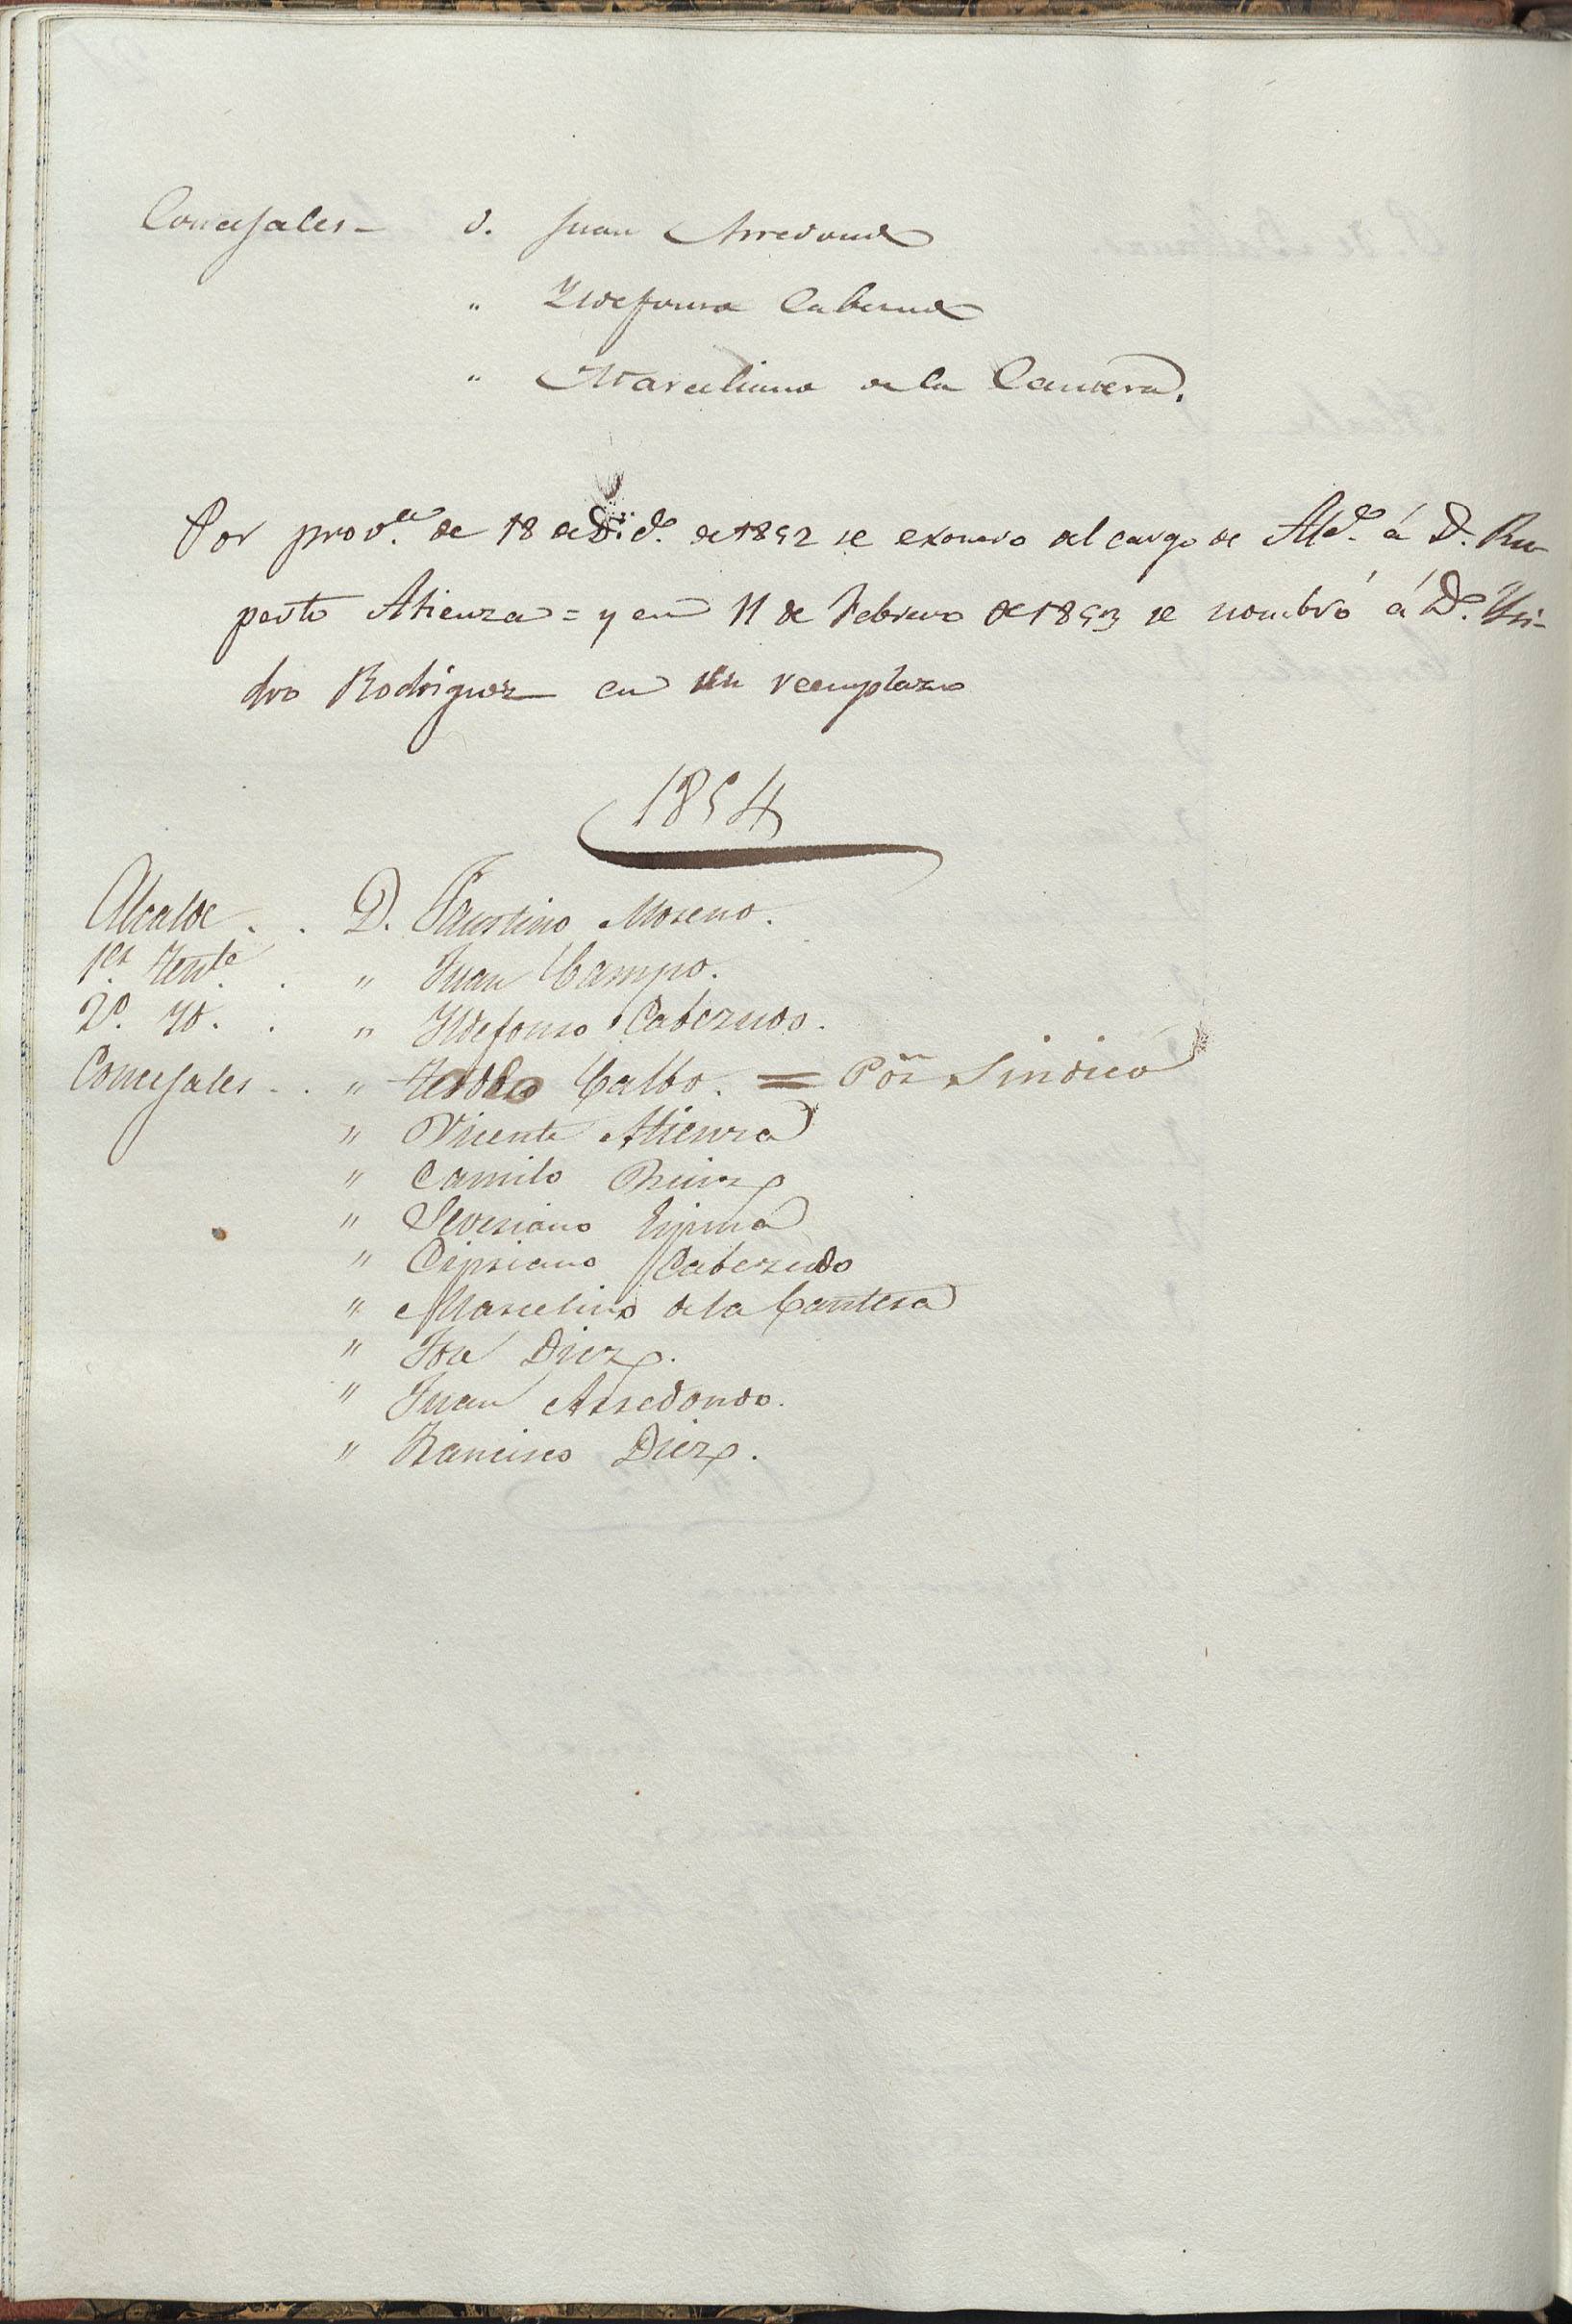 Concejales - D. Juan Arredondo
" Yldefonso Cabezudo
" Marceliano de la Cantera.
Por prov.cia de 18 de Dic.e de 1852 se exonero del cargo de Alc.e á D. Ru-
perto Atienza = y en 11 de Febrero de 1853 se nombró á D.n Ysi-
dro Rodriguez en su reemplazo
1854
Alcalde . . D. Faustino Moreno.
1.er Tente. . " Juan Campo.
2.o Yd. . " Yldefonso Cabezudo.
Concejales . . " Calbo. = P.or Sindico
" Vicente Atienza
" Camilo Ruiz
" Severiano Espina
" Cipriano Cabezudo
" Marcelino de la Cantera
" José Diez.
" Juan Arredondo.
" Francisco Diez.